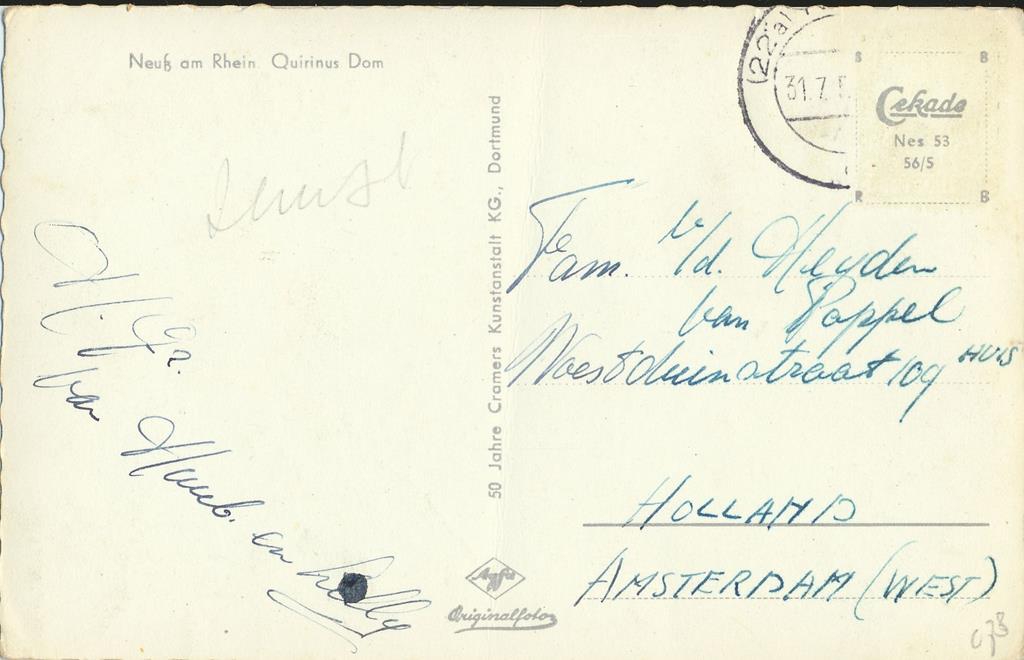 Neuß am Rhein. Quirinus Dom
(22a)
31.7.5
B B
Cekade
Nes 53
56/5
R B
50 Jahre Cramers Kunstanstalt KG., Dortmund
H. Gr.
van Huub. en
Fam. v/d. Heyden
van Poppel
Woestduinstraat 109 HUIS
HOLLAND
AMSTERDAM (WEST)
Agfa
Originalfoto